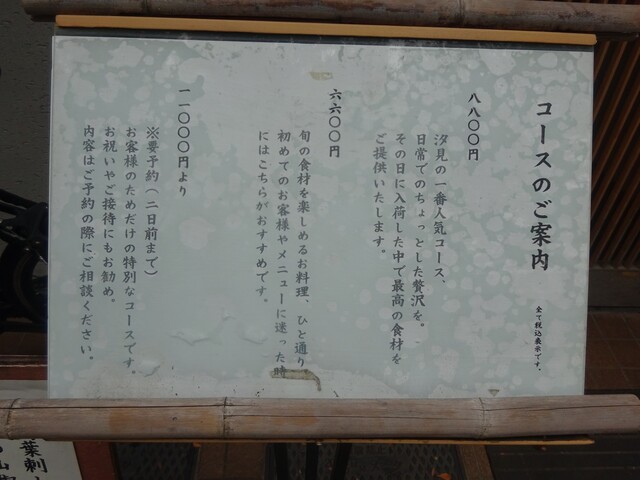 コースのご案内
全て税込表示です。
八八〇〇円
汐見の一番人気コース、
日常でのちょっとした贅沢を。
その日に入荷した中で最高の食材を
ご提供いたします。
六六〇〇円
旬の食材を楽しめるお料理、ひと通り
初めてのお客様やメニューに迷った時
にはこちらがおすすめです。
一一〇〇〇円より
※要予約(二日前まで)
お客様のためだけの特別なコースです。
お祝いやご接待にもお勧め。
内容はご予約の際にご相談ください。
葉刺